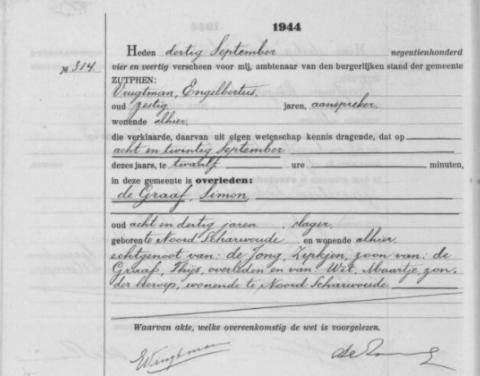 1944
Heden dertig September negentienhonderd
№ 314 vier en veertig verscheen voor mij, ambtenaar van den burgerlijken stand der gemeente
ZUTPHEN:
Vrugtman, Engelbertus,
oud zestig jaren, aanspreker,
wonende alhier,
die verklaarde, daarvan uit eigen wetenschap kennis dragende, dat op
acht en twintig September
dezes jaars, te twaalf ure minuten,
in deze gemeente is overleden:
de Graaf, Simon,
oud acht en dertig jaren, slager,
geboren te Noord Scharwoude en wonende alhier
echtgenoot van: de Jong, zoon van: de
Graaf, Thijs, overleden en van: Wit, Maartje, zon-
der beroep, wonende te Noord Scharwoude.
Waarvan akte, welke overeenkomstig de wet is voorgelezen.
EVrugtman